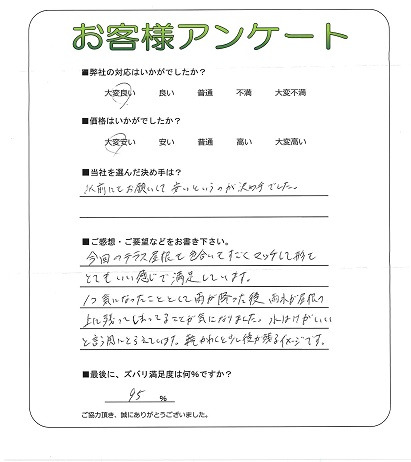 お客様アンケート
■弊社の対応はいかがでしたか？
大変良い 良い 普通 不満 大変不満
■価格はいかがでしたか？
大変安い 安い 普通 高い 大変高い
■当社を選んだ決め手は？
以前にもお願いして安いというのが決め手でした。
■ご感想・ご要望などをお書き下さい。
今回のテラス屋根も色合いすごくマッチして
とてもいい感じで満足しています。
1つ気になったこととして雨が降った後、雨水が屋根の
上に残ってしまってることが気になりました。水はけがいい
と言う風にとらえています。乾かれると少し後が残るイメージです。
■最後に、ズバリ満足度は何％ですか？
95 ％
ご協力頂き、誠にありがとうございました。